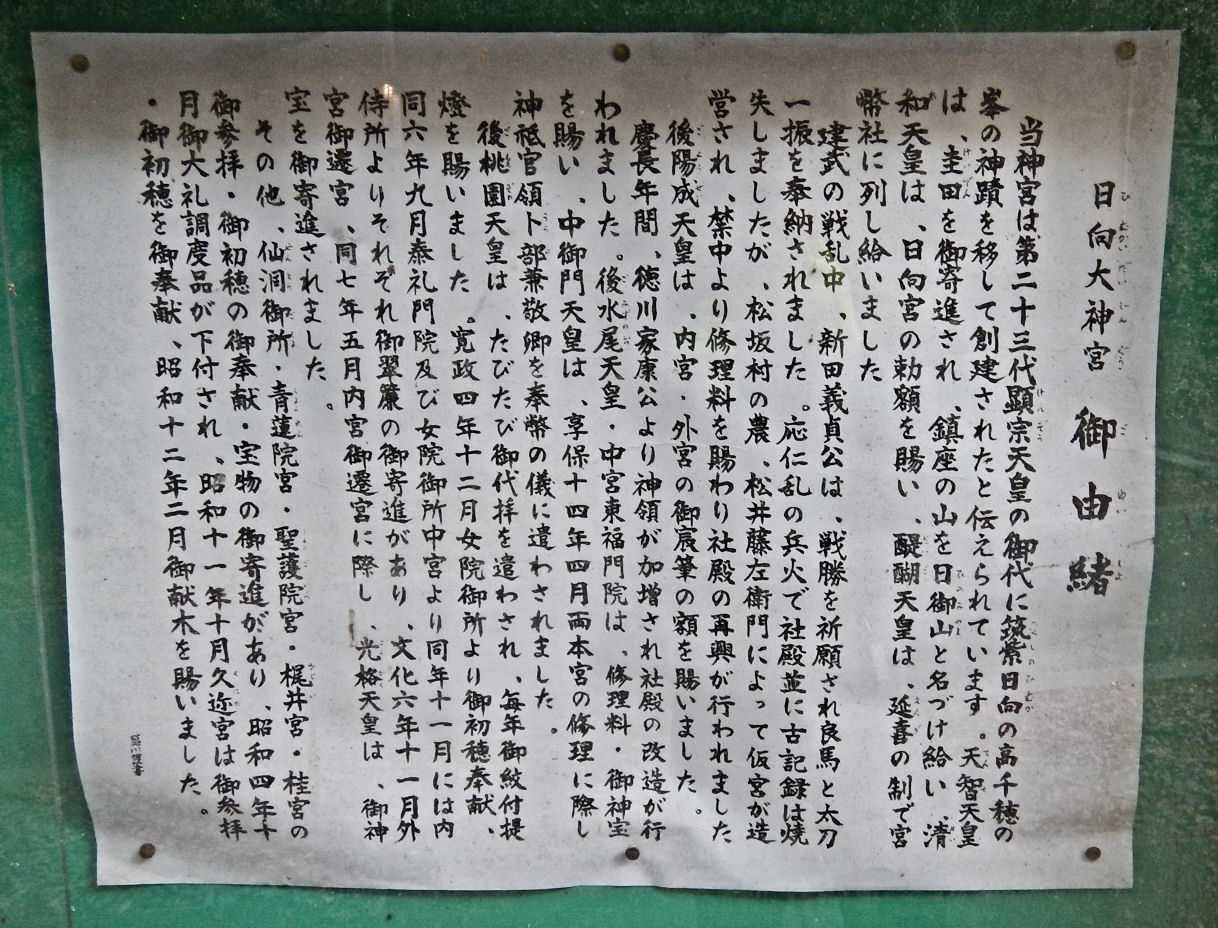 日向大神宮 御由緒
当神宮は第二十三代顕宗天皇の御代に筑紫日向の高千穂の
峯の神蹟を移して創建されたと伝えられています。天智天皇
は、圭田を御寄進され、鎮座の山を日御山と名づけ給い、清
和天皇は、日向宮の勅額を賜い、醍醐天皇は、延喜の制で官
幣社に列し給いました
建武の戦乱中、新田義貞公は、戦勝を祈願され良馬と太刀
一振を奉納されました。応仁乱の兵火で社殿並に古記録は焼
失しましたが、松坂村の農、松井藤左衛門によって仮宮が造
営され、禁中より修理料を賜わり社殿の再興が行われました
後陽成天皇は、内宮・外宮の御宸筆の額を賜いました。
慶長年間、徳川家康公より神領が加増され社殿の改造が行
われました。後水尾天皇・中宮東福門院は、修理料・御神宝
を賜い、中御門天皇は、享保十四年四月両本宮の修理に際し
神祗官領卜部兼敬卿を奉幣の儀に遣わされました。
後桃園天皇は、たびたび御代拝を遣わされ、毎年御紋付提
燈を賜いました。寛政四年十二月女院御所より御初穂奉献、
同六年九月恭礼門院及び女院御所中宮より同年十一月には内
侍所よりそれぞれ御翠簾の御寄進があり、文化六年十一月外
宮御遷宮、同七年五月内宮御遷宮に際し、光格天皇は、御神
宝を御寄進されました。
その他、仙洞御所・青蓮院宮・聖護院宮・梶井宮・桂宮の
御参拝・御初穂の御奉献・宝物の御寄進があり、昭和四年十
月御大礼調度品が下付され、昭和十一年十月久迩宮は御参拝
・御初穂を御奉献、昭和十二年二月御献木を賜いました。